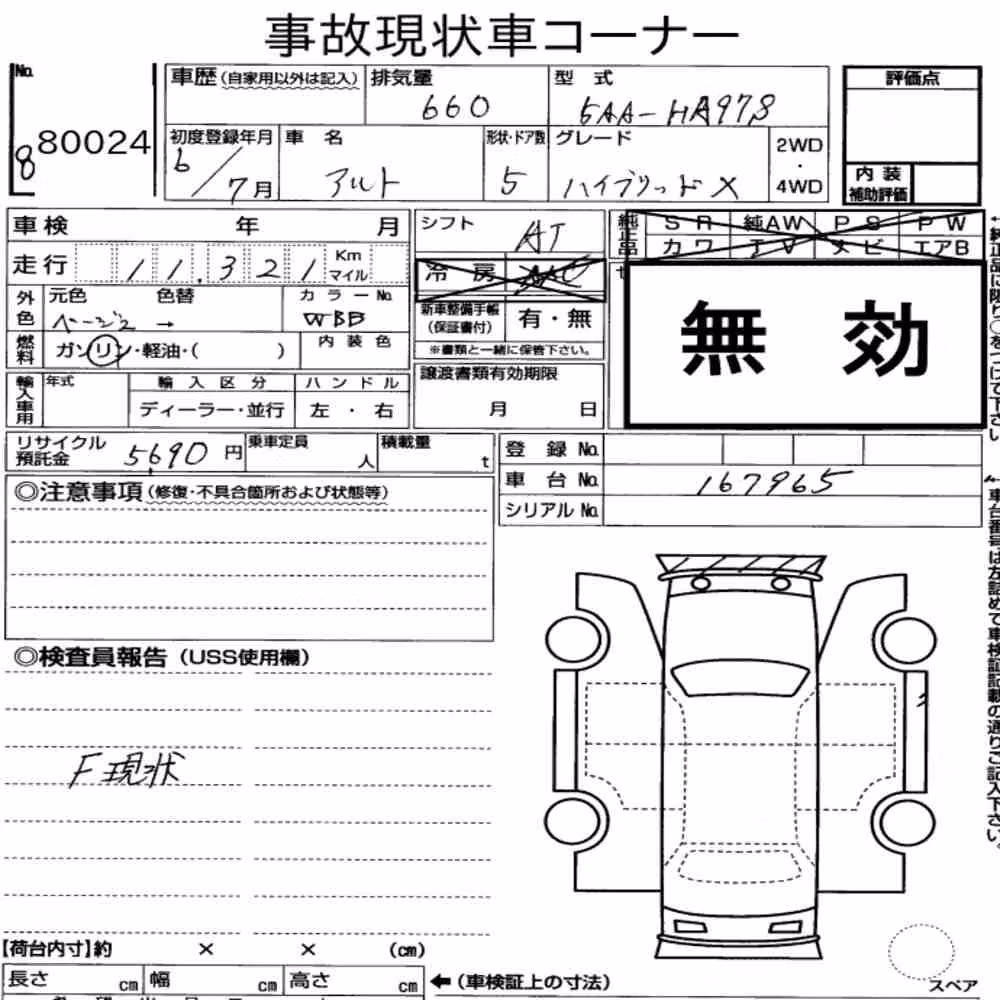 事故現状車コーナー
No. 8 80024
車歴 (自家用以外は記入) 排気量 660 型式 5AA-HA97S
評価点
初度登録年月 6/7月 車名 アルト 形状・ドア数 5 グレード ハイブリッドX 2WD・4WD
内装補助評価
車検 年 月
シフト AT
純正品 SR 純AW PS PW
カワ TV ナビ エアB
走行 11,321 Km マイル
冷房 AAC
外色 元色 ベージュ 色替 → カラーNo. WBB
新車整備手帳 (保証書付) 有・無
※書類と一緒に保管下さい。
無効
燃料 ガソリン・軽油・( ) 内装色
輸入車用 年式 輸入区分 ハンドル
ディーラー・並行 左・右
譲渡書類有効期限
月 日
リサイクル預託金 5690円 乗車定員 人 積載量 t
登録No.
車台No. 167965
シリアルNo.
◎注意事項 (修復・不具合箇所および状態等)
◎検査員報告 (USS使用欄)
F現状
【荷台内寸】約 × × (cm)
長さ cm 幅 cm 高さ cm ←(車検証上の寸法)
スペア
車台番号は左詰めで車検証記載の通りご記入下さい。